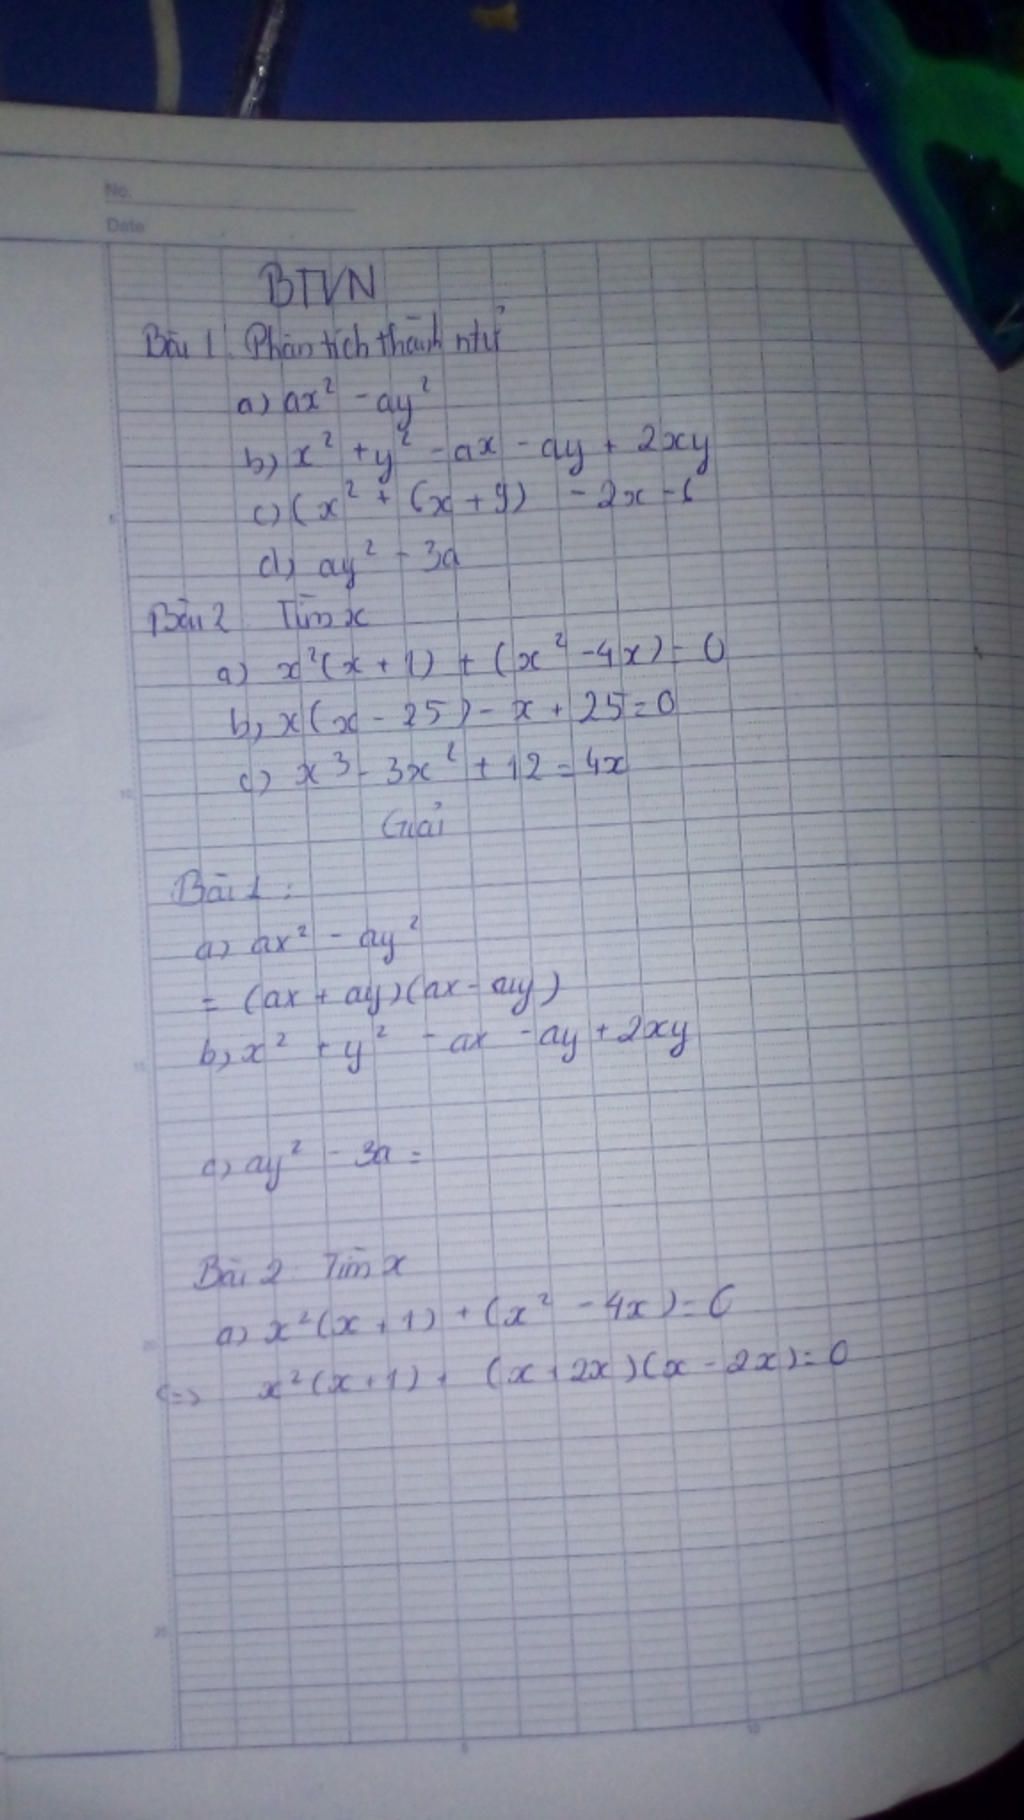 No.
Date
BTVN
Bài 1: Phân tích thành ntử
a) ax² - ay²
b) x² + y² - ax - ay + 2xy
c) (x² + 6x + 9) - 2x - 6
d) ay² - 3a
Bài 2 Tìm x
a) x²(x + 1) + (x² - 4x) = 0
b, x(x - 25) - x + 25 = 0
c) x³ - 3x² + 12 = 4x
Giải
Bài 1:
a) ax² - ay²
= (ax + ay)(ax - ay)
b, x² + y² - ax - ay + 2xy
c) ay² - 3a =
Bài 2 Tìm x
a) x²(x + 1) + (x² - 4x) = 0
(=> x²(x + 1) + (x + 2x)(x - 2x) = 0
5
10
15
20
25
5
10